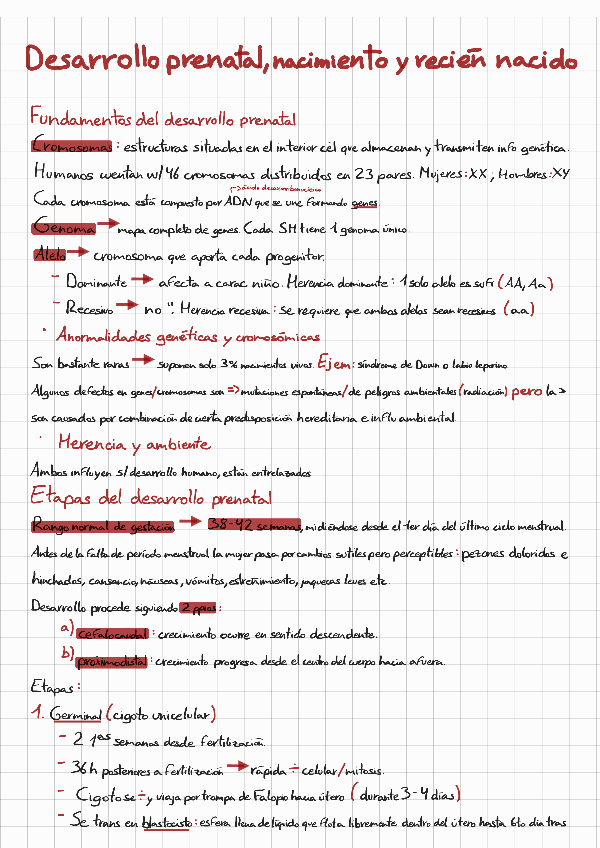 Desarrollo prenatal, nacimiento y recién nacido
Fundamentos del desarrollo prenatal
Cromosomas: estructuras situadas en el interior cél que almacenan y transmiten info genética.
Humanos cuentan w/ 46 cromosomas distribuidos en 23 pares. Mujeres: XX, Hombres: XY
→ ácido desoxirribonucleico
Cada cromosoma está compuesto por ADN que se une formando genes.
Genoma → mapa completo de genes. Cada SH tiene 1 genoma único.
Alelo → cromosoma que aporta cada progenitor.
- Dominante → afecta a carac niño. Herencia dominante: 1 solo alelo es sufi (AA, Aa)
- Recesivo → no ". Herencia recesiva: se requiere que ambos alelos sean recesivos (aa)
· Anormalidades genéticas y cromosómicas
Son bastante raras → suponen solo 3% nacimientos vivos. Ejem: síndrome de Down o labio leporino.
Algunos defectos en genes/cromosomas son => mutaciones espontáneas/de peligros ambientales (radiación) pero la >
son causados por combinación de cierta predisposición hereditaria e influ ambiental.
· Herencia y ambiente
Ambos influyen s/ desarrollo humano, están entrelazados
Etapas del desarrollo prenatal
Rango normal de gestación → 38-42 semanas, midiéndose desde el 1er día del último ciclo menstrual.
Antes de la falta de período menstrual la mujer pasa por cambios sutiles pero perceptibles: pezones doloridos e
hinchados, cansancio, náuseas, vómitos, estreñimiento, jaquecas leves etc.
Desarrollo procede siguiendo 2 ppios:
a) cefalocaudal: crecimiento ocurre en sentido descendente.
b) proximodistal: crecimiento progresa desde el centro del cuerpo hacia afuera.
Etapas:
1. Germinal (cigoto unicelular)
- 2 1as semanas desde fertilización.
- 36h posteriores a fertilización → rápida ÷ celular/mitosis.
- Cigoto se ÷ y viaja por trompa de Falopio hacia útero (durante 3-4 días)
- Se trans en blastocisto: esfera llena de líquido que flota libremente dentro del útero hasta 6to día tras